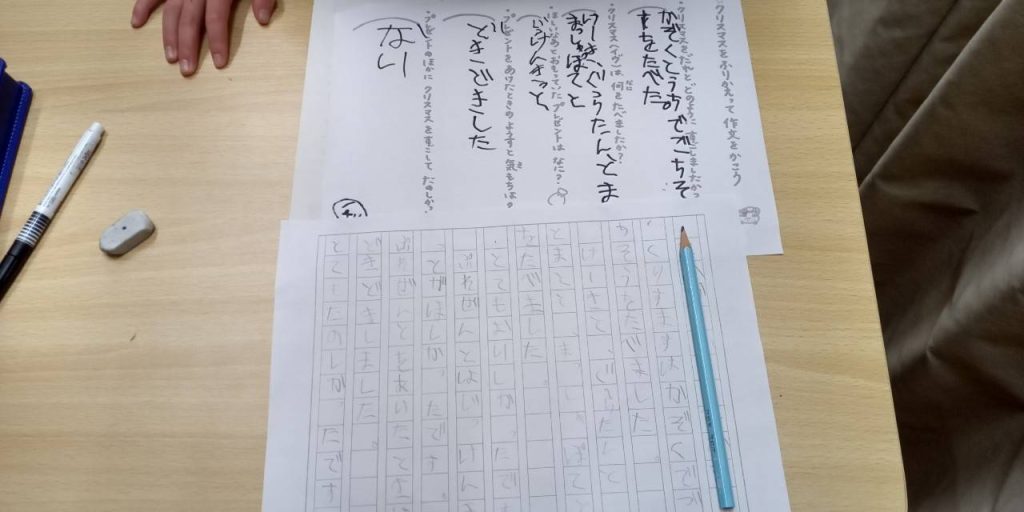 クリスマスをふりかえって作文をかこう
・クリスマスをだれと、どのように すごしましたか?
かぞくとうちでごちそ
うをたべた
・クリスマス(イヴ)は 何をたべましたか?
なに
けーきぐらたんとま
っしゅぽてと
・ほしいなあとおもっていた プレゼントは なに?
じっけんきっと
・プレゼントをあけたときの ようすと 気もちは?
き
どきどきした
・プレゼントのほかに クリスマスを すごして たのしかっ
ない
くりすますはかぞくで
ちそうをたべました。
けーきと、ぐらたんと
とまっしゅぽて
をたべました。
とてもおいしかったで
ぷれぜんとはじっけん
っとがほしかったです
ぷれぜんとをあいたとき
どきどきしました。
とてもたのしかったです